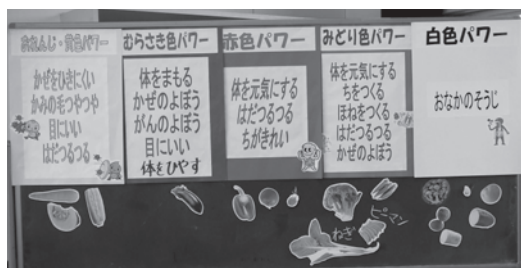 おれんじ・黄色パワー
かぜをひきにくい
かみの毛つやつや
目にいい
はだつるつる
むらさき色パワー
体をまもる
かぜのよぼう
がんのよぼう
目にいい
体をひやす
赤色パワー
体を元気にする
はだつるつる
ちがきれい
みどり色パワー
体を元気にする
ちをつくる
ほねをつくる
はだつるつる
かぜのよぼう
白色パワー
おなかのそうじ
ピーマン
ねぎ